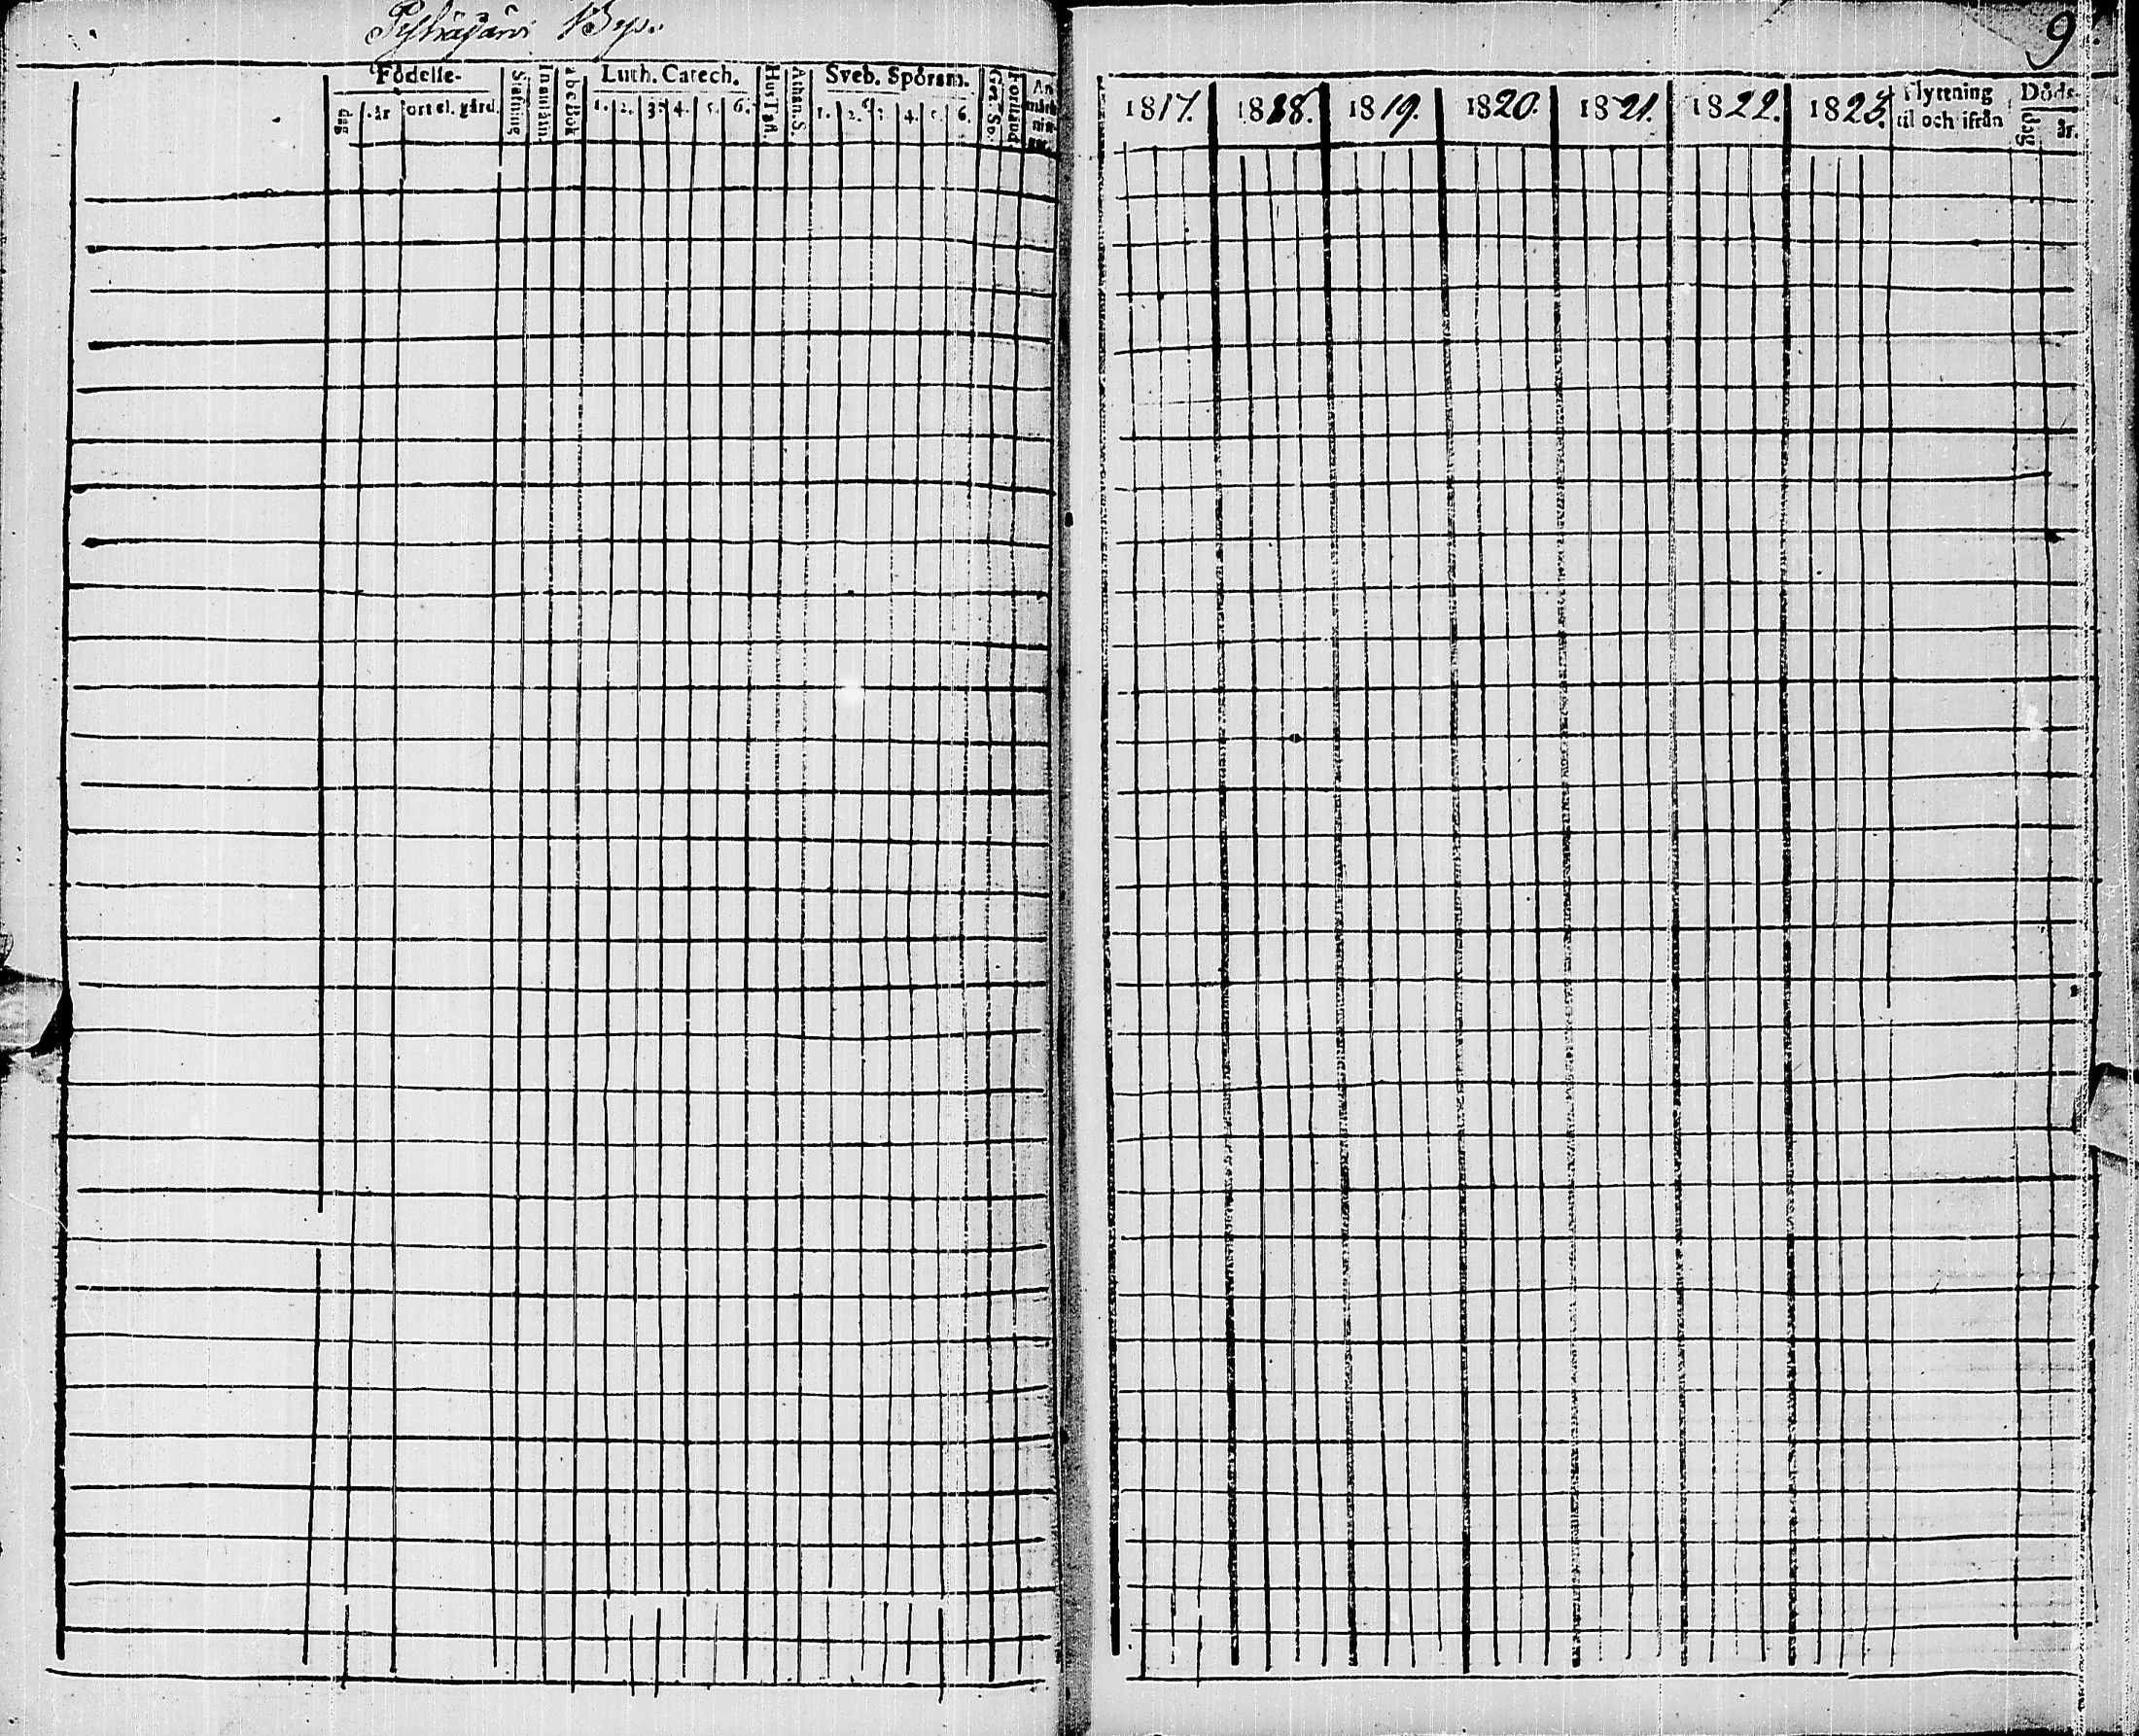 Pyhäjärvi By.
9.
Födelse-
dag
år
ort el. gård.
Stafning
Innanläsn.
abc Bok
Luth. Catech.
1. 2. 3. 4. 5. 6.
HusTafl.
Athan. S.
Sveb. Spörsm.
1. 2. 3. 4. 5. 6.
Förstånd
An
märk
nin
gar.
1817. 1818. 1819. 1820. 1821. 1822. 1823.
Flyttning
til och ifrån
Döds-
dag
år.